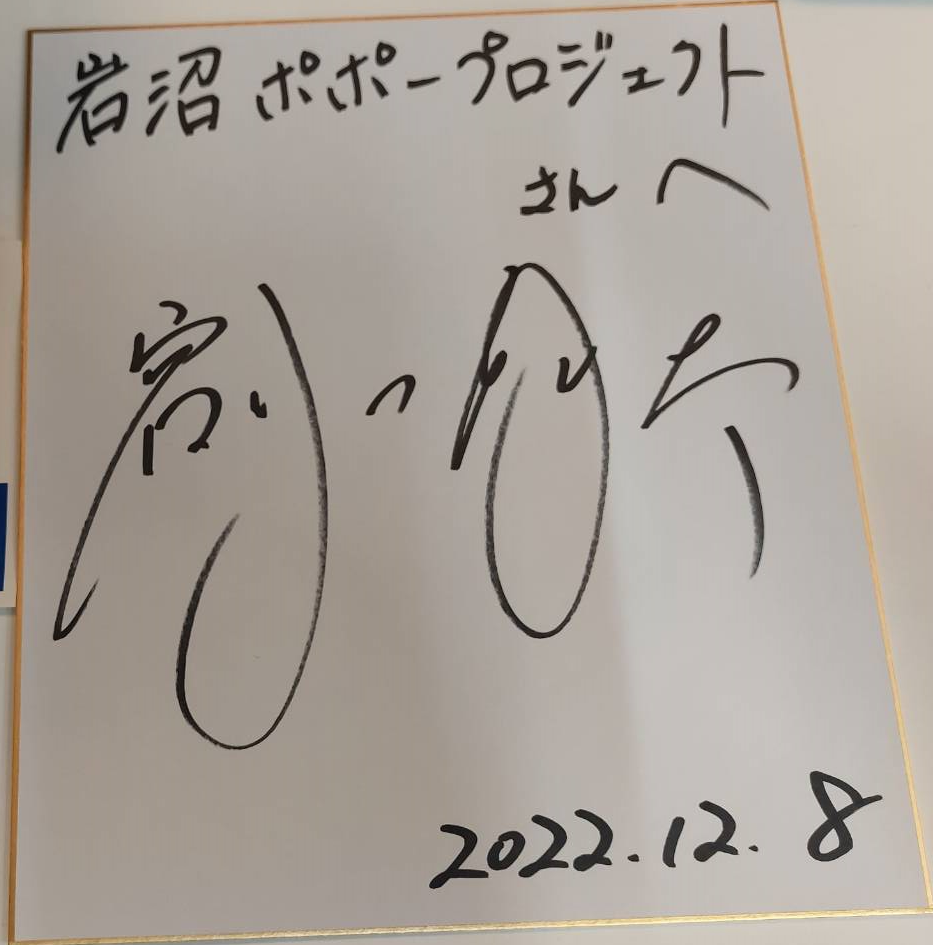 岩沼 ポポープロジェクト
さんへ
2022.12.8